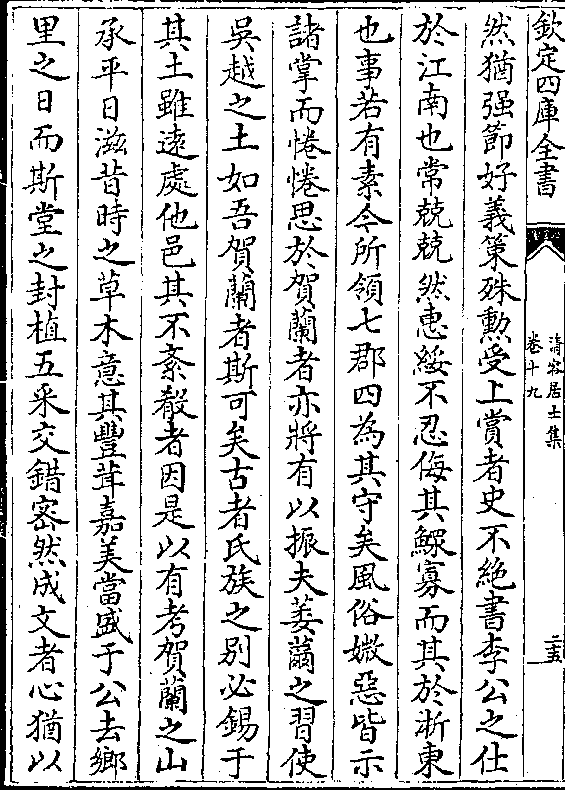 欽定四庫全書
清容居士集
卷十九
二五
然猶强節好義策殊勲受上賞者史不絶書李公之仕
於江南也常兢兢然惠綏不忍侮其鰥寡而其於浙東
也事若有素今所領七郡四為其守矣風俗媺惡皆示
諸掌而惓惓思於賀蘭者亦將有以振夫萎薾之習使
吳越之土如吾賀蘭者斯可矣古者氏族之别必錫于
其土雖遠處他邑其不紊殽者因是以有考賀蘭之山
承平日滋昔時之草木意其豐茸嘉美當盛于公去鄉
里之日而斯堂之封植五采交錯宻然成文者心猶以